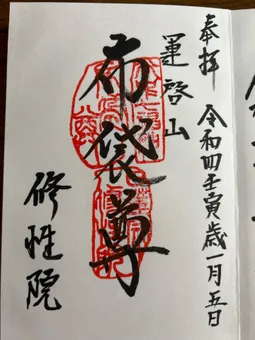 奉拝
令和四壬寅歳一月五日
運啓山
布袋尊
修性院